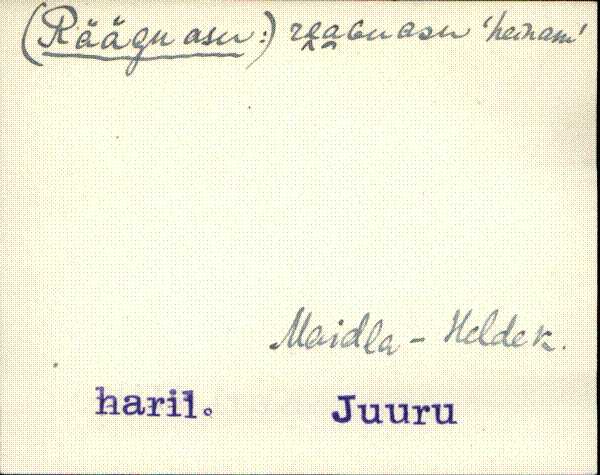 (Räägu asu:) rea͔Gu asu 'heinam'
Maidla - Helda k.
haril. Juuru